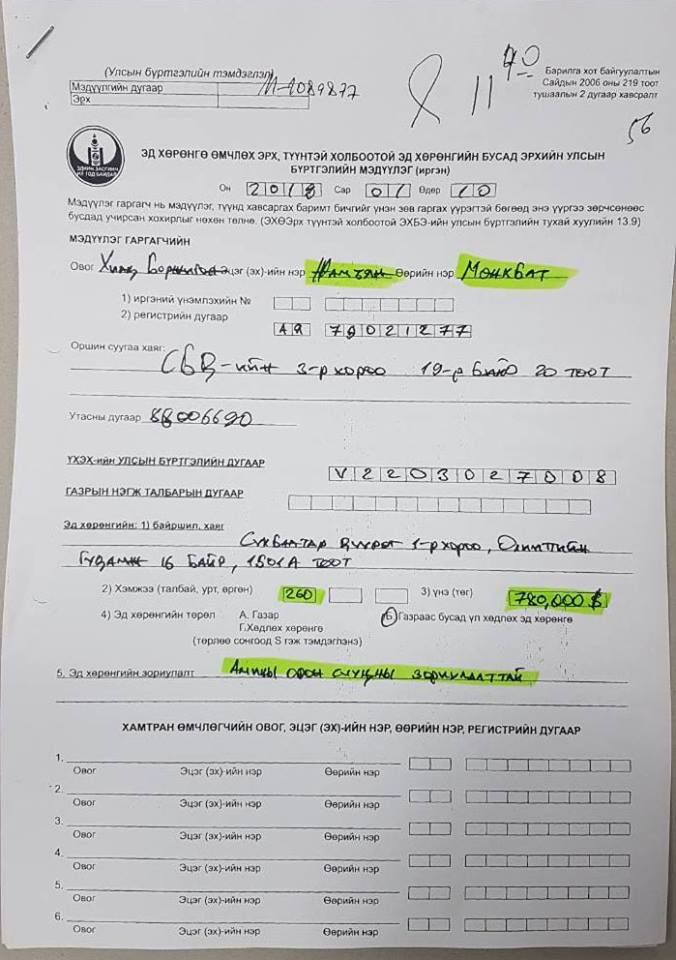 (Улсын бүртгэлийн тэмдэглэл)
Мэдүүлгийн дугаар
Эрх
Барилга хот байгуулалтын
Сайдын 2006 оны 219 тоот
тушаалын 2 дугаар хавсралт
56
ЭД ХӨРӨНГӨ ӨМЧЛӨХ ЭРХ, ТҮҮНТЭЙ ХОЛБООТОЙ ЭД ХӨРӨНГИЙН БУСАД ЭРХИЙН УЛСЫН
БҮРТГЭЛИЙН МЭДҮҮЛЭГ (иргэн)
Он 2018 Сар 01 Өдөр 10
Мэдүүлэг гаргагч нь мэдүүлэг, түүнд хавсаргах баримт бичгийг үнэн зөв гаргах үүрэгтэй бөгөөд энэ үүргээ зөрчсөнөөс
бусдад учирсан хохирлыг нөхөн төлнө. (ЭХӨЭрх түүнтэй холбоотой ЭХБЭ-ийн улсын бүртгэлийн тухай хуулийн 13.9)
МЭДҮҮЛЭГ ГАРГАГЧИЙН
Овог Эцэг (эх)-ийн нэр Өөрийн нэр Мөнхбат
1) иргэний үнэмлэхийн №
2) регистрийн дугаар
79021277
Оршин суугаа хаяг:
СБД-ийн 3-р хороо 19-р байр 20 тоот
Утасны дугаар 88006690
ҮХЭХ-ийн УЛСЫН БҮРТГЭЛИЙН ДУГААР
V2203027008
ГАЗРЫН НЭГЖ ТАЛБАРЫН ДУГААР
Эд хөрөнгийн: 1) байршил, хаяг
Сүхбаатар дүүрэг 1-р хороо, Олимпийн
гудамж 16 байр, 1501А тоот
2) Хэмжээ (талбай, урт, өргөн) 260 3) үнэ (төг) 780,000 $
4) Эд хөрөнгийн төрөл А. Газар Б Газраас бусад үл хөдлөх эд хөрөнгө
Г.Хөдлөх хөрөнгө
(төрлөө сонгоод S гэж тэмдэглэнэ)
5. Эд хөрөнгийн зориулалт Амины орон сууцны зориулалттай
ХАМТРАН ӨМЧЛӨГЧИЙН ОВОГ, ЭЦЭГ (ЭХ)-ИЙН НЭР, ӨӨРИЙН НЭР, РЕГИСТРИЙН ДУГААР
1.
Овог Эцэг (эх)-ийн нэр Өөрийн нэр
2.
Овог Эцэг (эх)-ийн нэр Өөрийн нэр
3.
Овог Эцэг (эх)-ийн нэр Өөрийн нэр
4.
Овог Эцэг (эх)-ийн нэр Өөрийн нэр
5.
Овог Эцэг (эх)-ийн нэр Өөрийн нэр
6.
Овог Эцэг (эх)-ийн нэр Өөрийн нэр